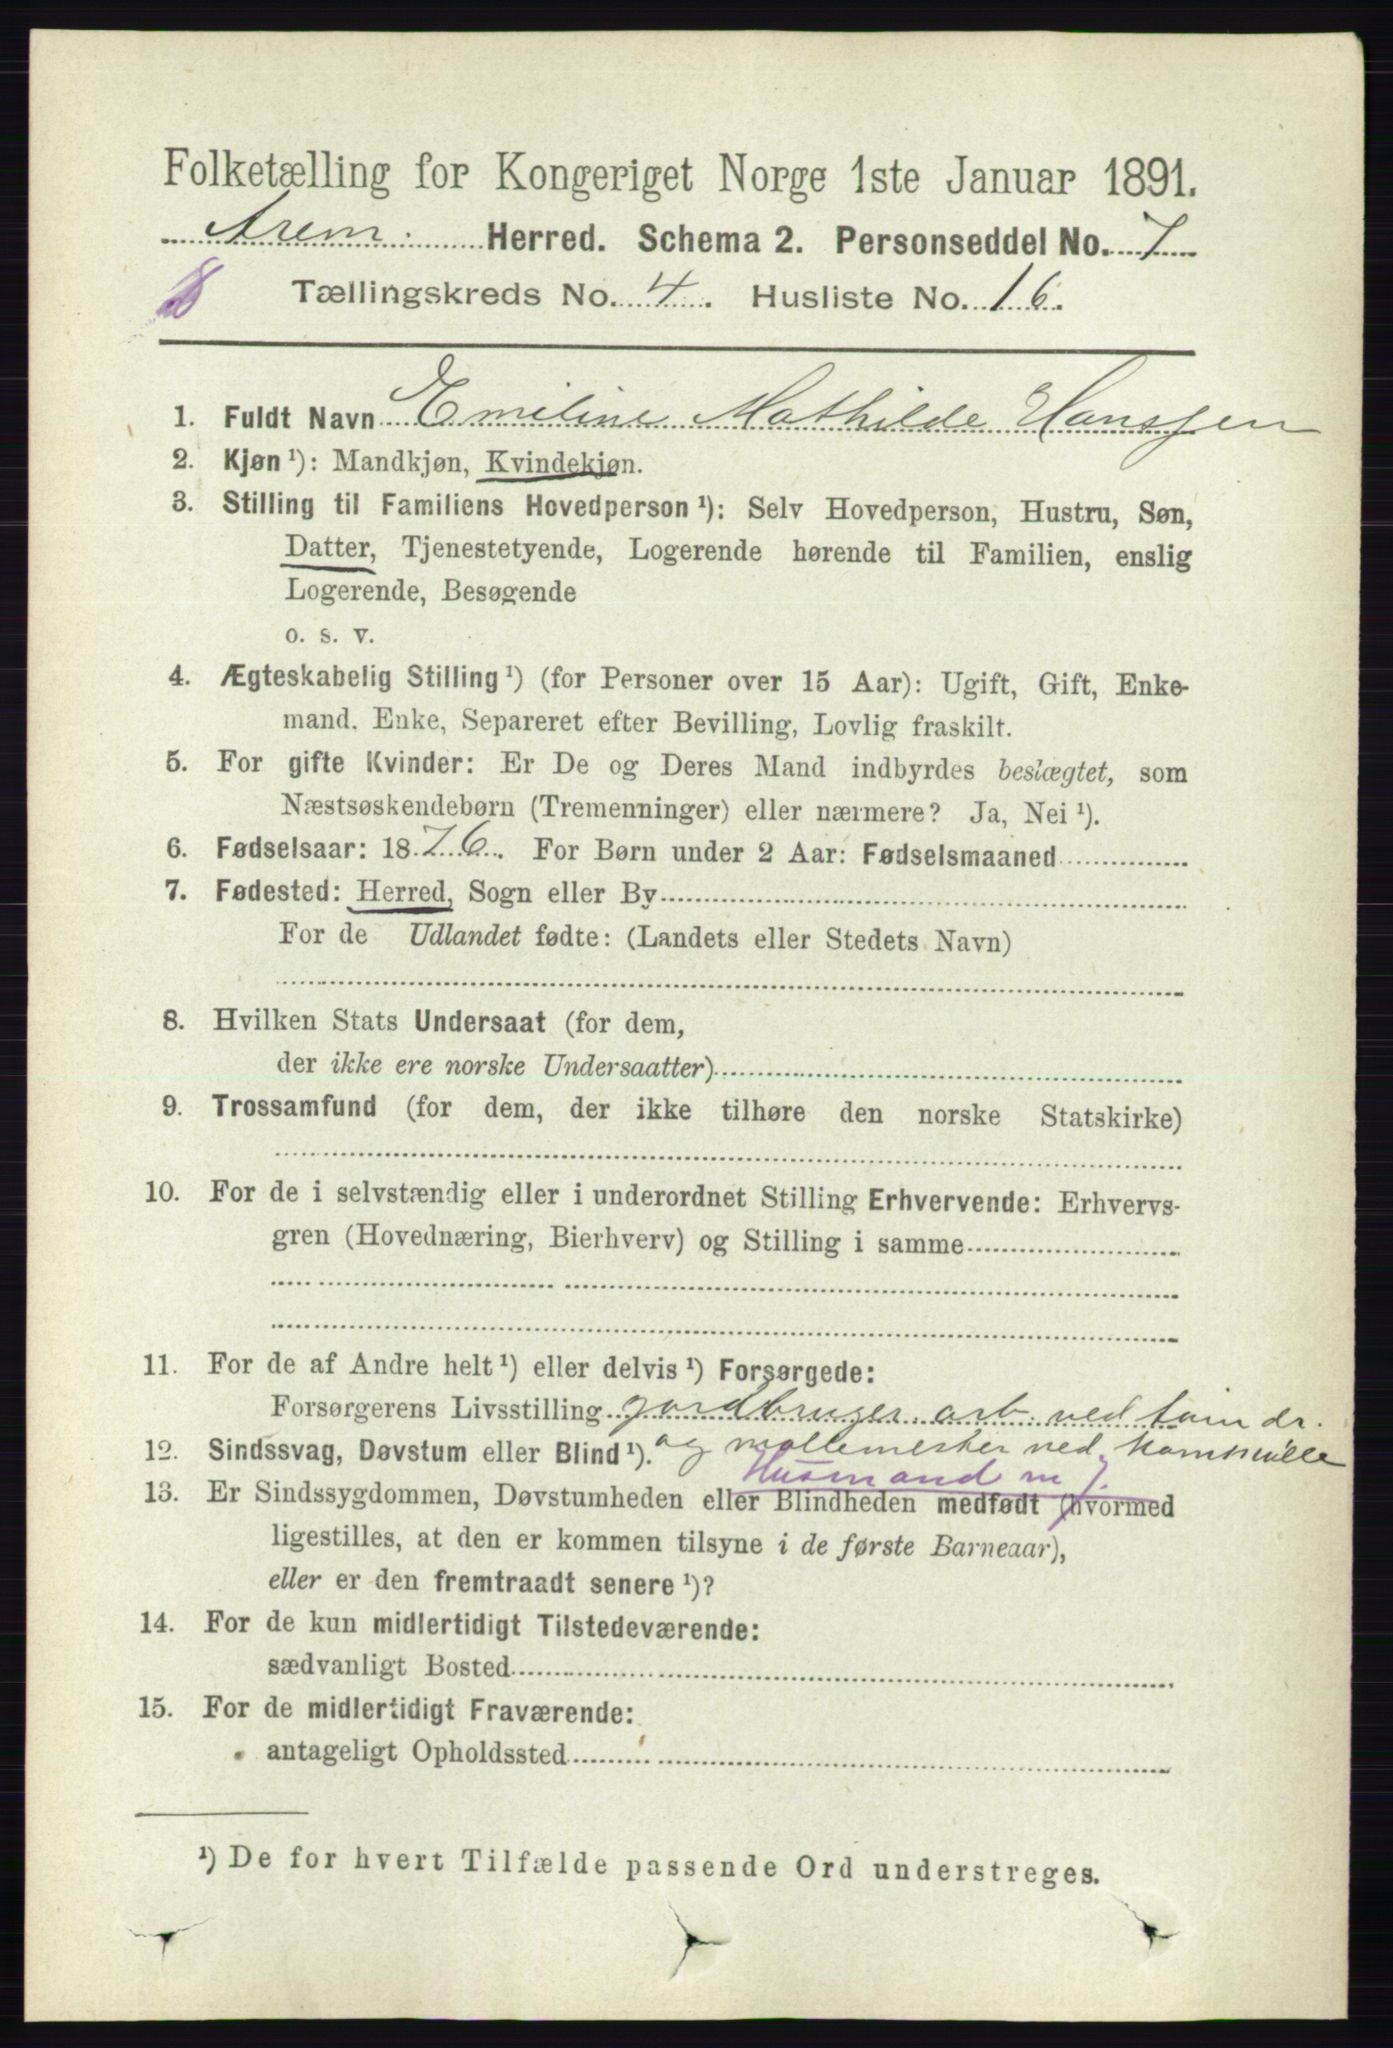 Folketælling for Kongeriget Norge 1ste Januar 1891.
Arem. Herred. Schema 2. Personseddel No. 7
Tællingskreds No. 4. Husliste No. 16.
1. Fuldt Navn Emiline Mathilde Hanssen
2. Kjøn ¹): Mandkjøn, Kvindekjøn.
3. Stilling til Familiens Hovedperson ¹): Selv Hovedperson, Hustru, Søn,
Datter, Tjenestetyende, Logerende hørende til Familien, enslig
Logerende, Besøgende
o. s. v.
4. Ægteskabelig Stilling ¹) (for Personer over 15 Aar): Ugift, Gift, Enke-
mand. Enke, Separeret efter Bevilling, Lovlig fraskilt.
5. For gifte Kvinder: Er De og Deres Mand indbyrdes beslægtet, som
Næstsøskendebørn (Tremenninger) eller nærmere? Ja, Nei ¹).
6. Fødselsaar: 1876. For Børn under 2 Aar: Fødselsmaaned
7. Fødested: Herred, Sogn eller By
For de Udlandet fødte: (Landets eller Stedets Navn)
8. Hvilken Stats Undersaat (for dem,
der ikke ere norske Undersaatter)
9. Trossamfund (for dem, der ikke tilhøre den norske Statskirke)
10. For de i selvstændig eller i underordnet Stilling Erhvervende: Erhvervs-
gren (Hovednæring, Bierhverv) og Stilling i samme
11. For de af Andre helt ¹) eller delvis ¹) Forsørgede:
Forsørgerens Livsstilling jordbruger. arb. ved
12. Sindssvag, Døvstum eller Blind ¹). og møllemester ved
Husmand m j.
13. Er Sindssygdommen, Døvstumheden eller Blindheden medfødt (hvormed
ligestilles, at den er kommen tilsyne i de første Barneaar),
eller er den fremtraadt senere ¹)?
14. For de kun midlertidigt Tilstedeværende:
sædvanligt Bosted
15. For de midlertidigt Fraværende:
antageligt Opholdssted
¹) De for hvert Tilfælde passende Ord understreges.